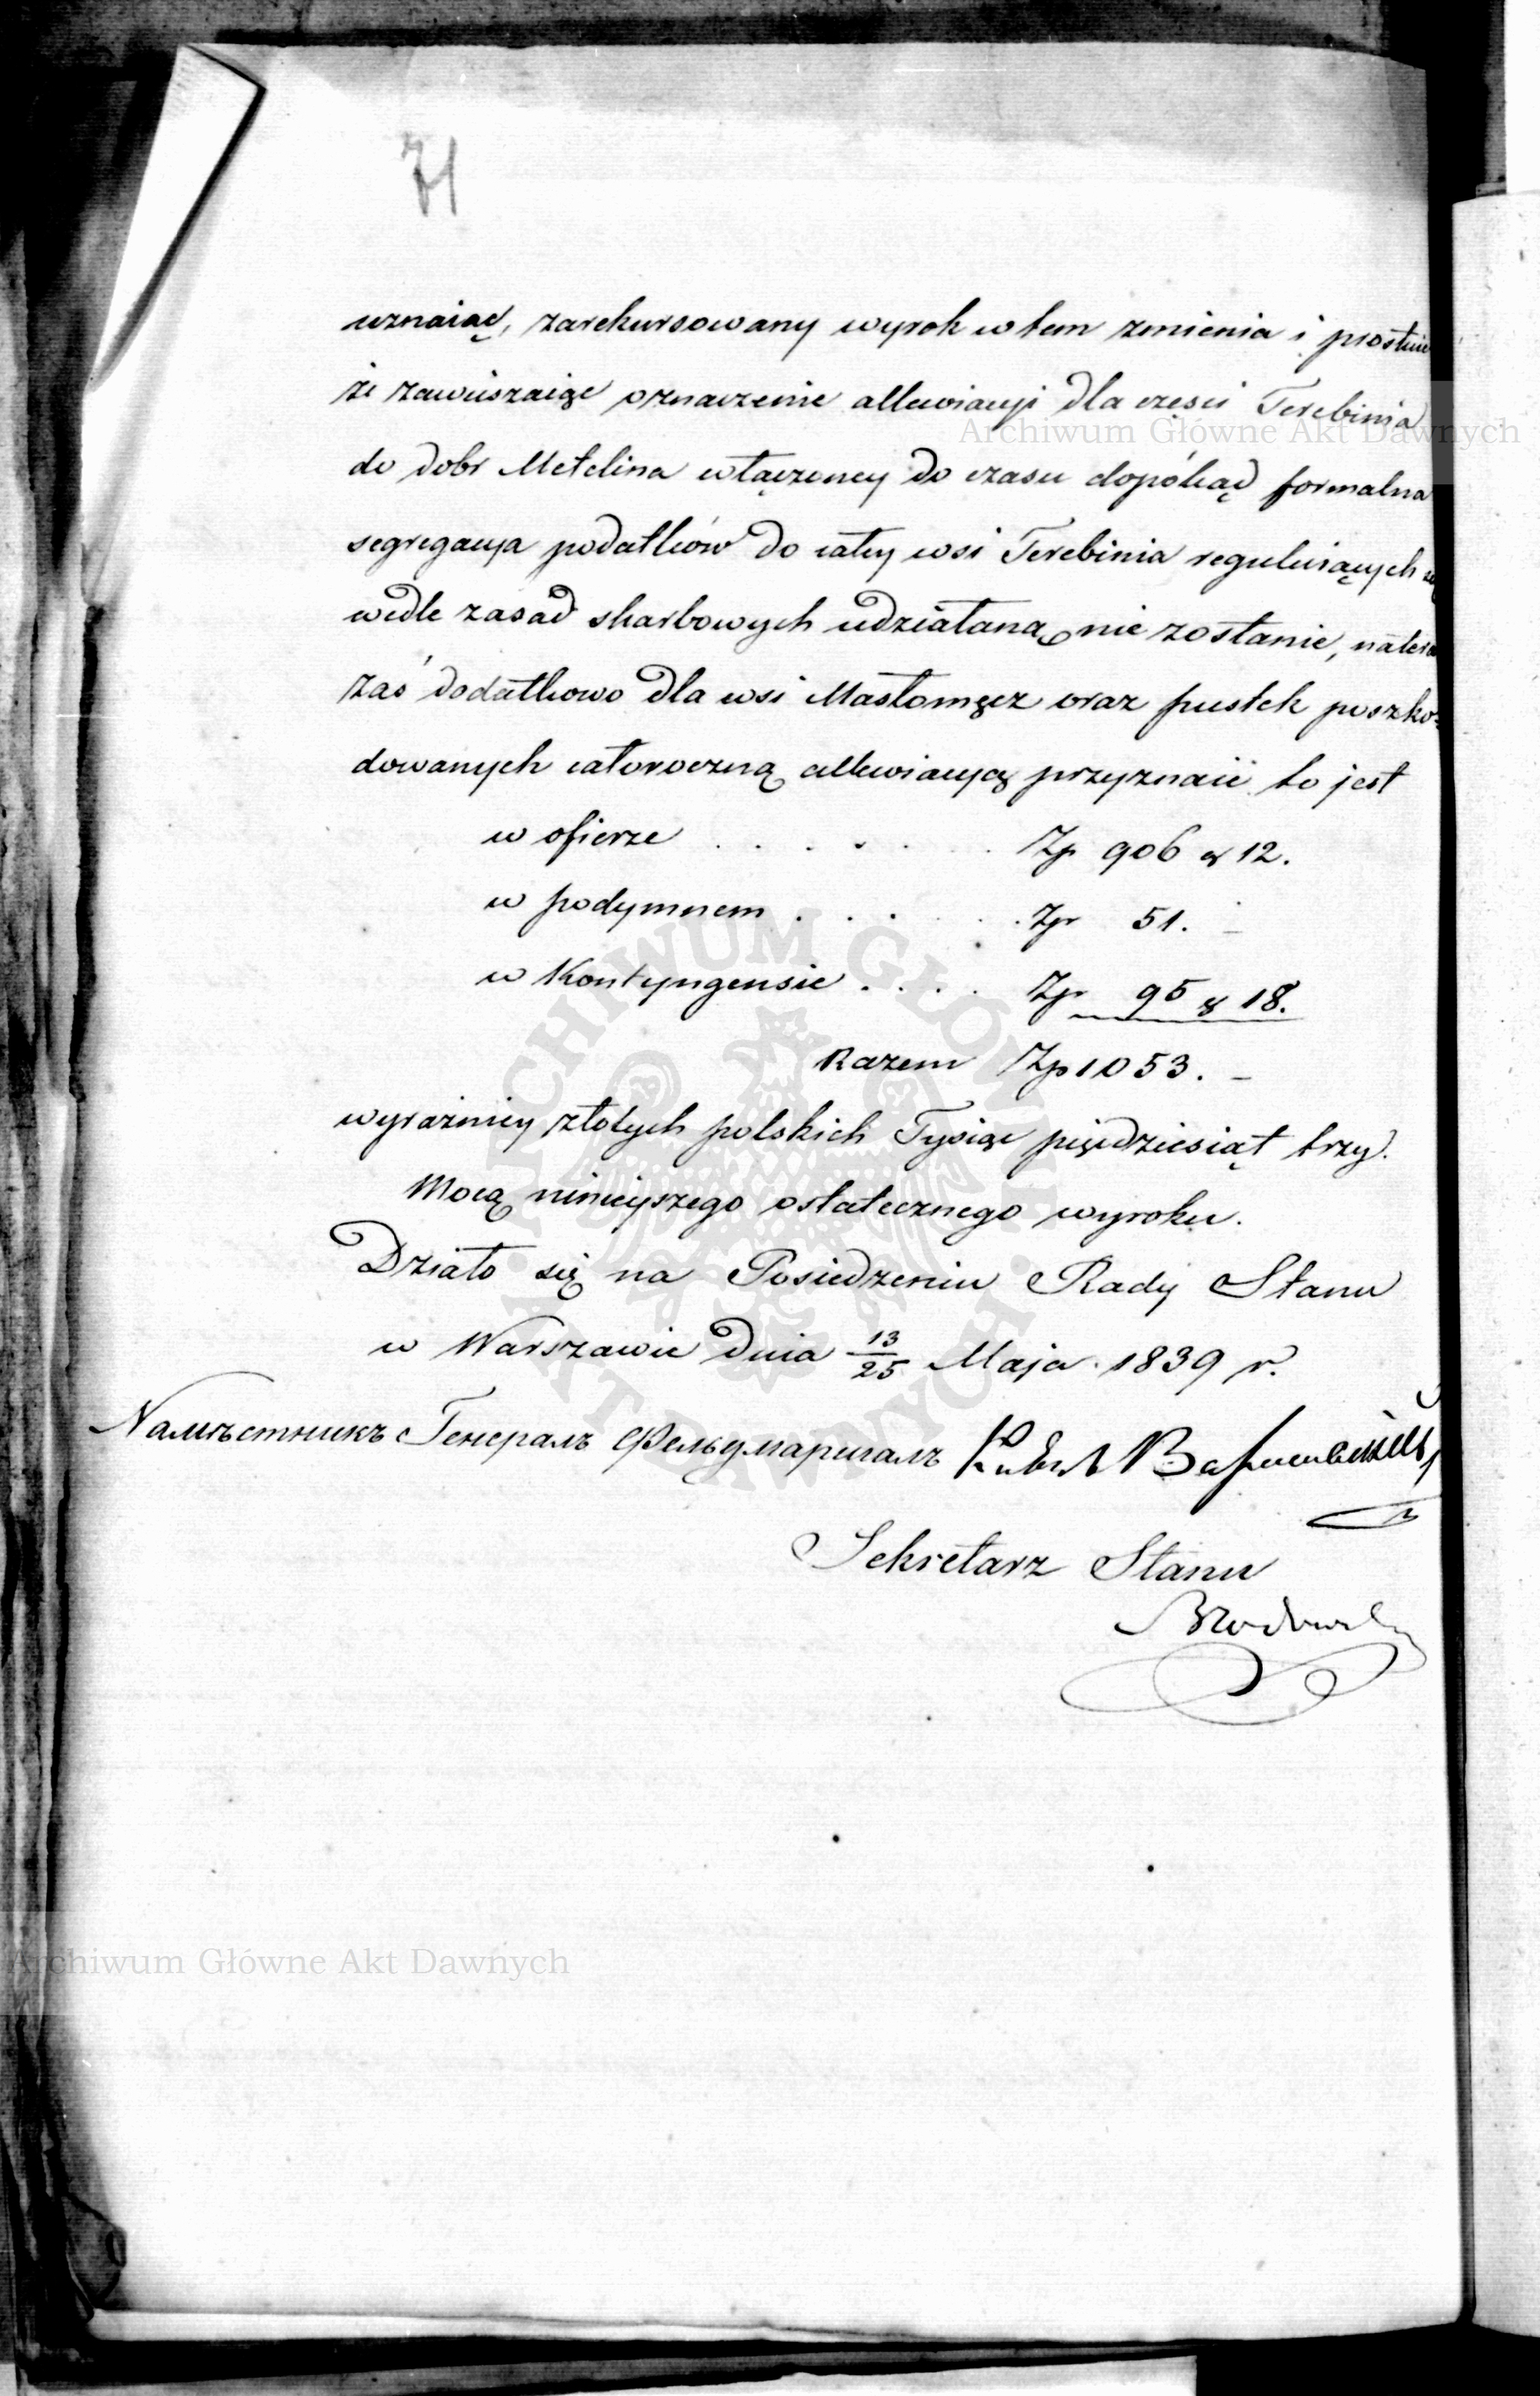 71
uznaiąc, zarekursowany wyrok w tem zmienia i
że zawieszaiąc oznaczenie allewiacyi dla części Terebinia
Archiwum Główne Akt Dawnych
do dobr Metelina włączoney do czasu dopókąd formalna
segregacya podatków do całey wsi Terebinia reguluiących
wedle zasad skarbowych udziałaną nie zostanie,
zaś dodatkowo dla wsi Masłomęcz oraz pustek poszko-
dowanych całoroczną allewiacyą przyznaie to jest
w ofierze . . . . . . Zp 906 gr 12.
w podymnem . . . . . Zp 51. —
w Kontyngensie . . . . Zp 95 gr 18.
Razem Zp 1053. —
wyraźniey złotych polskich Tysiąc pięćdziesiąt trzy.
Mocą ninieyszego ostatecznego wyroku.
Działo się na Posiedzeniu Rady Stanu
w Warszawie dnia 13/25 Maja 1839 r.
Намѣстникъ Генералъ Фельдмаршалъ
Sekretarz Stanu
ARCHIWUM GŁÓWNE AKT DAWNYCH
Archiwum Główne Akt Dawnych